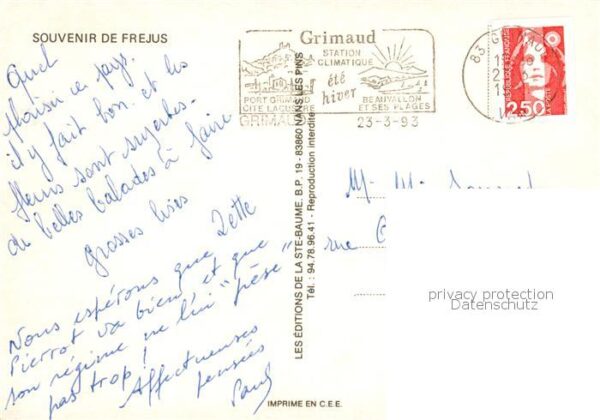 SOUVENIR DE FREJUS
Quel
plaisir ce pays.
il y fait bon et les
fleurs sont superbes.
de belles balades à faire
grosses bises
Zette
Nous espérons que
Pierrot va bien et que
son régime ne lui "pèse"
pas trop!
Affectueuses
pensées
Paul
LES ÉDITIONS DE LA STE-BAUME. B.P. 19 - 83860 NANS LES PINS
Tél. : 94.78.96.41 - Reproduction interdite
IMPRIME EN C.E.E.
Grimaud
STATION
CLIMATIQUE
été
hiver
PORT GRIMAUD
CITE LACUSTRE
BEAUVALLON
ET SES PLAGES
GRIMAUD
23-3-93
83 GRIMAUD
REPUBLIQUE FRANÇAISE
2,50
LA POSTE
M. Mme
rue
privacy protection
Datenschutz